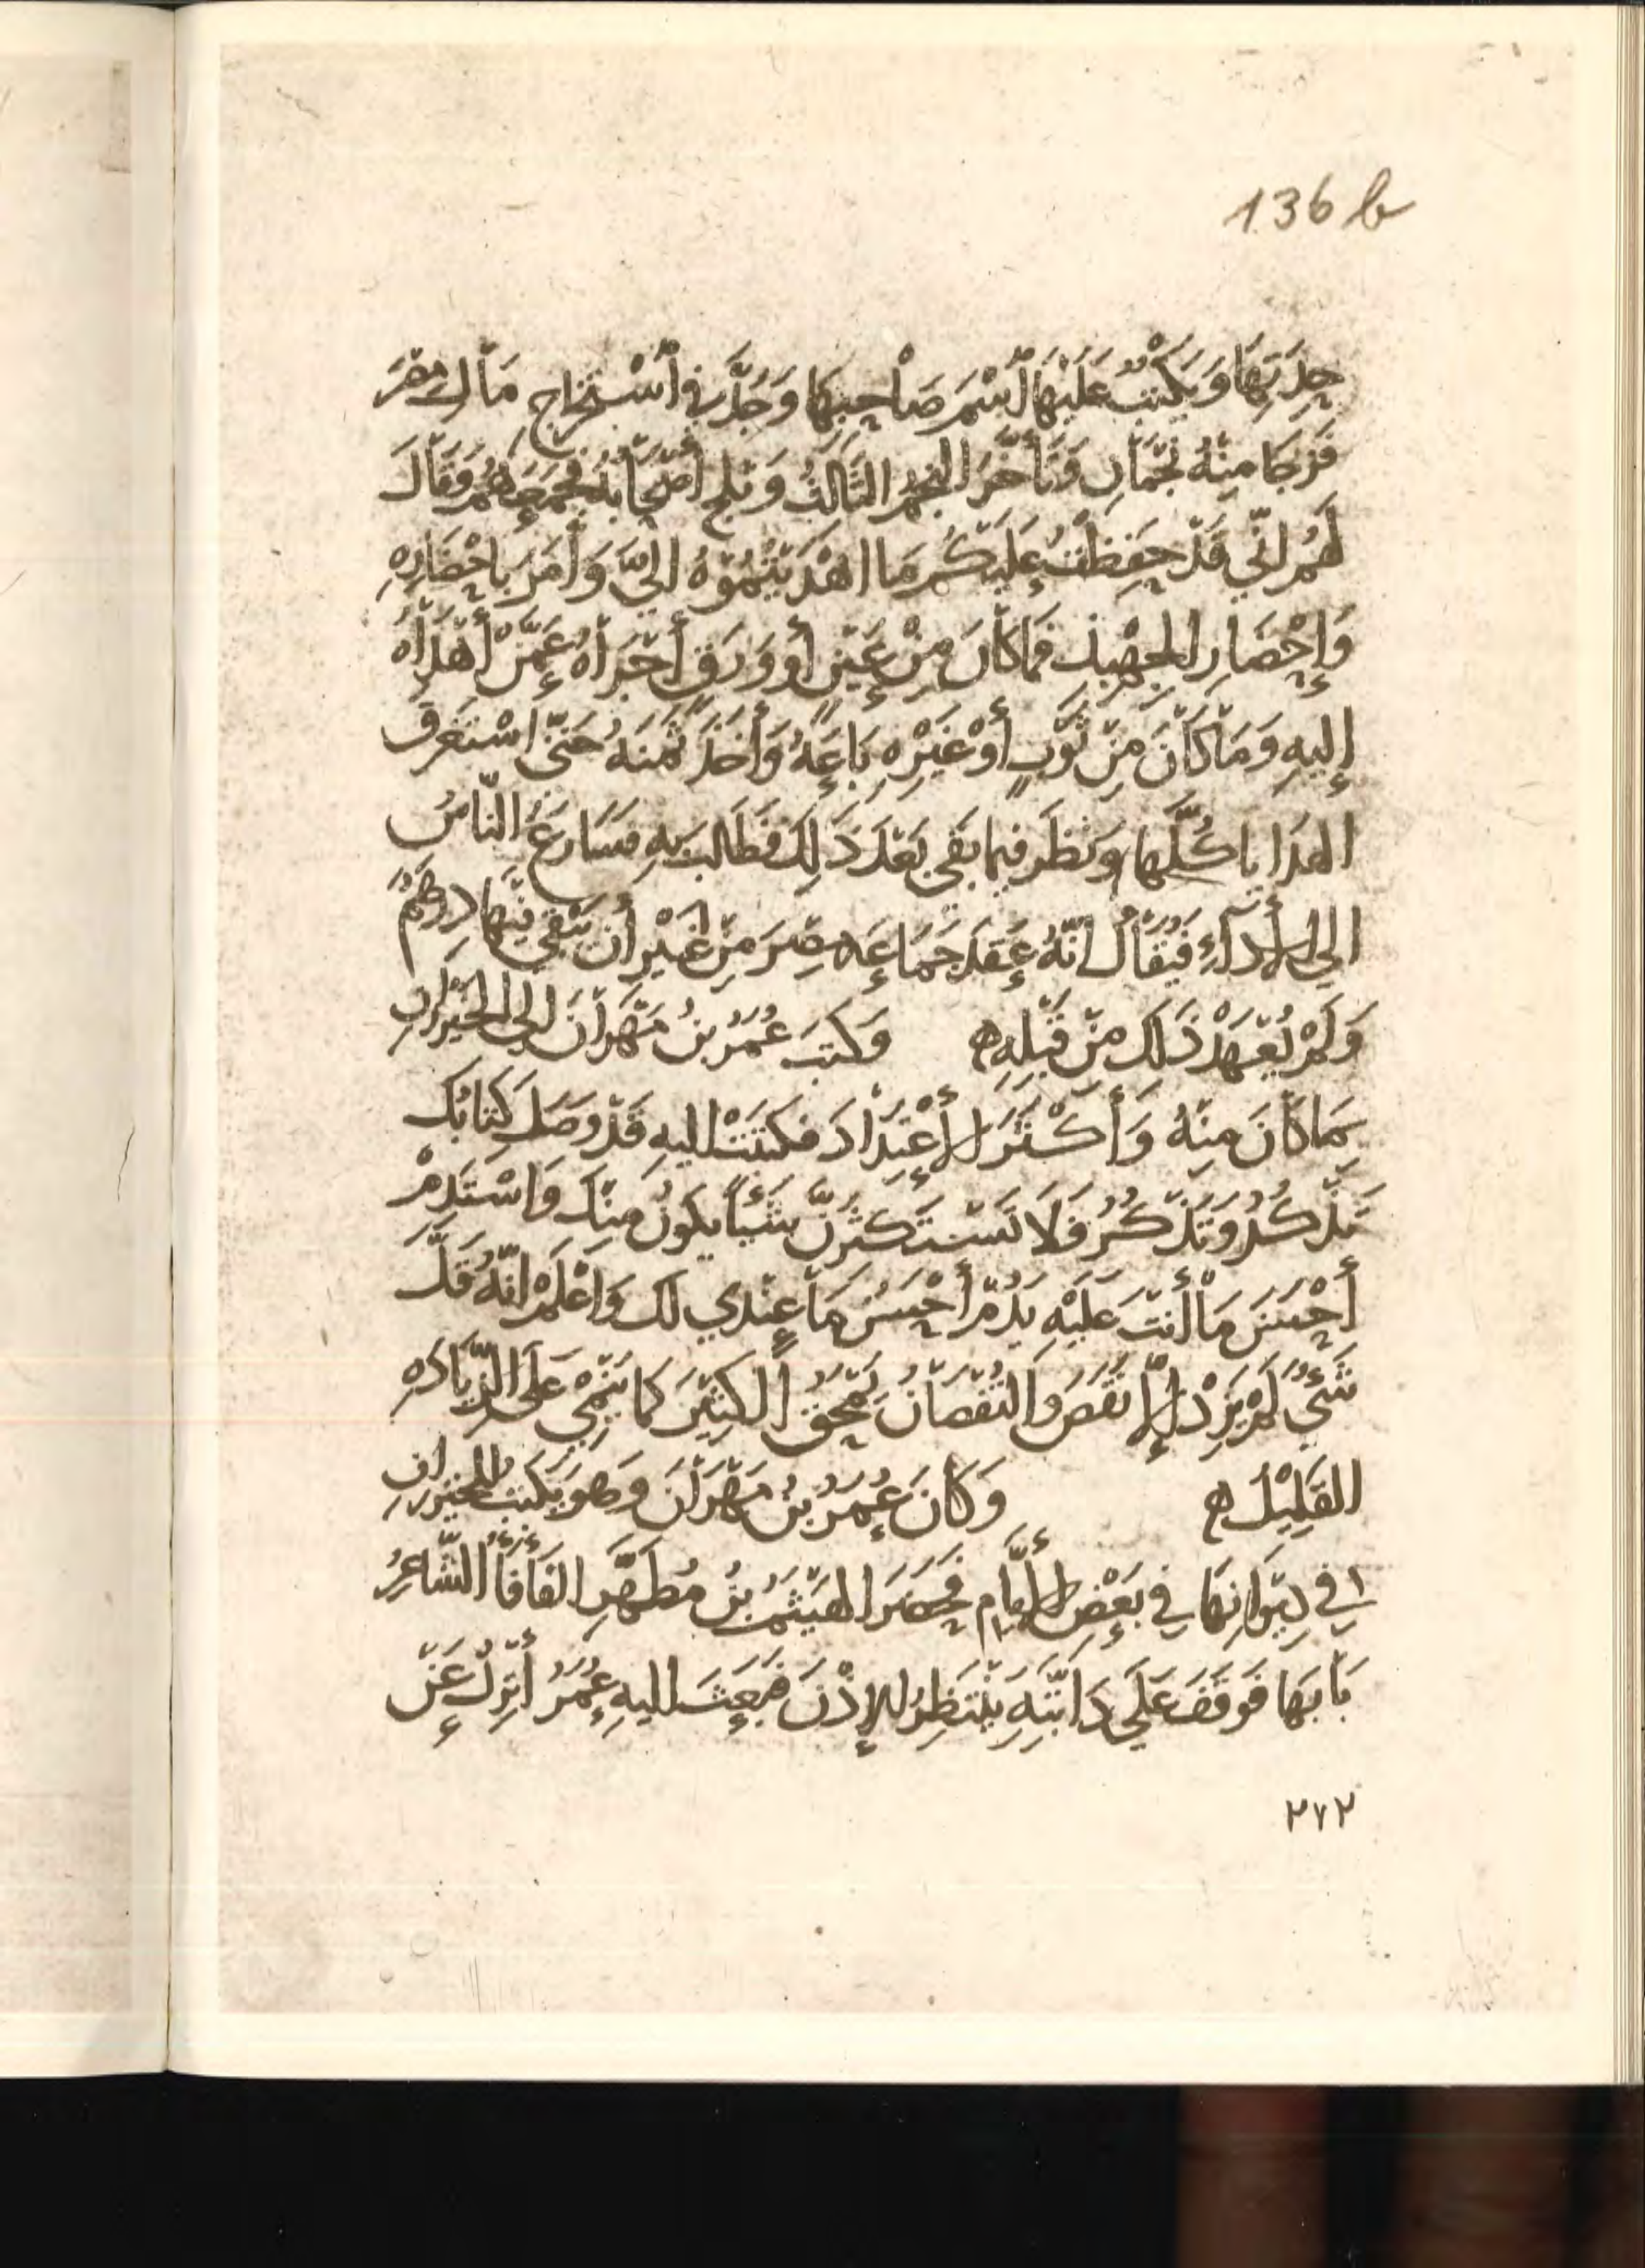 136 b
حِدَتِهَا وَيَكْتُبُ عَلَيْهَا اَسْمَ صَاحِبِهَا وَجَدَّ فِي اَسْتِخْرَاجِ مَالِ مِصْرَ
فَزَجَا مِنْهُ نَجْمَانِ وَتَأَخَّرَ النجمُ الثَّالِثُ وَتَلَحَ أَصْحَابُهُ فَجَمَعَهُمْ وَقَالَ
لَهُمْ اِنِّي قَدْ حَفِظْتُ عَلَيْكُمْ مَا اهْدَيْتُمُوْهُ اِلَيَّ وَأَمَرَ بِاحْضَارِهِ
وَإِحْضَارِ الجِهْبِذِ فَمَا كَانَ مِنْ عَيْنٍ أو وَرَقٍ أَجْزَاهُ عَمَّنْ أَهْدَاهُ
إِليهِ وَمَا كَانَ مِنْ ثَوْبٍ أَوْ غَيْرِهِ بَاعَهُ وَأَخَذَ ثَمَنَهُ حَتّى اسْتَغْرَقَ
الهَدَايا كُلَّهَا وَنَظَرَ فيما بَقِي بَعْدَ ذَلِكَ فَطَالَبَ بِهِ فسَارَعَ النّاسُ
الي الأَدَآءِ فَيُقَالُ اِنّهُ عَقَدَ جَمَاعَه مِصْرَ مِنْ غَيْرِ أن يَبْقَي فِيْهَا دِرهَمٌ
وَلَمْ يُعْهَدْ ذَلِكَ مِنْ قَبْلِهِ ه وَكَتَبَ عُمَرُ بنُ مَهْرَانَ اِلي الخَيْزُرَانِ
بِمَا كَانَ مِنْهُ وَأَكْثَرَ الأِعْتِدَادَ فكَتَبَتْ اِليهِ قَدْ وَصَلَ كِتَابُكَ
تَذْكُرُ وَتَذْكُرُ فَلَا تَسْتَكْثِرَنَّ شَيْئاً يكونُ مِنْكَ وَاسْتَدِمْ
أَحْسَنَ مَا أَنْتَ عَلَيْهِ يَدُمْ أَحْسَنُ مَا عِنْدِي لَك وَاعْلَمْ اِنّهُ قَلَّ
شَيْءٌ لَمْ يَزِدْ اِلّا نَقَصَ وَالنُقْصَانُ يَمْحَقُ اَلكِثيْرَ كما يَنْمِي عَلَى الزِّيَادَهِ
القَلِيْلُ ه وَكَانَ عُمَرُ بنُ مَهْرَانَ وَهو يَكتبُ للخيزرانِ
في دِيْوَانِهَا في بَعْضِ الأَيَّامِ فَحَضَرَ الهَيْثَمُ بنُ مُطَهَّرِ الفَأفَأُ الشّاعِرُ
بَابَهَا فَوَقَفَ عَلَي دَابَّتِهِ يَنْتَظِرُ الإِذْنَ فَبَعَثَ اِليهِ عُمَرُ أَنْزِلْ عَنْ
٢٧٢